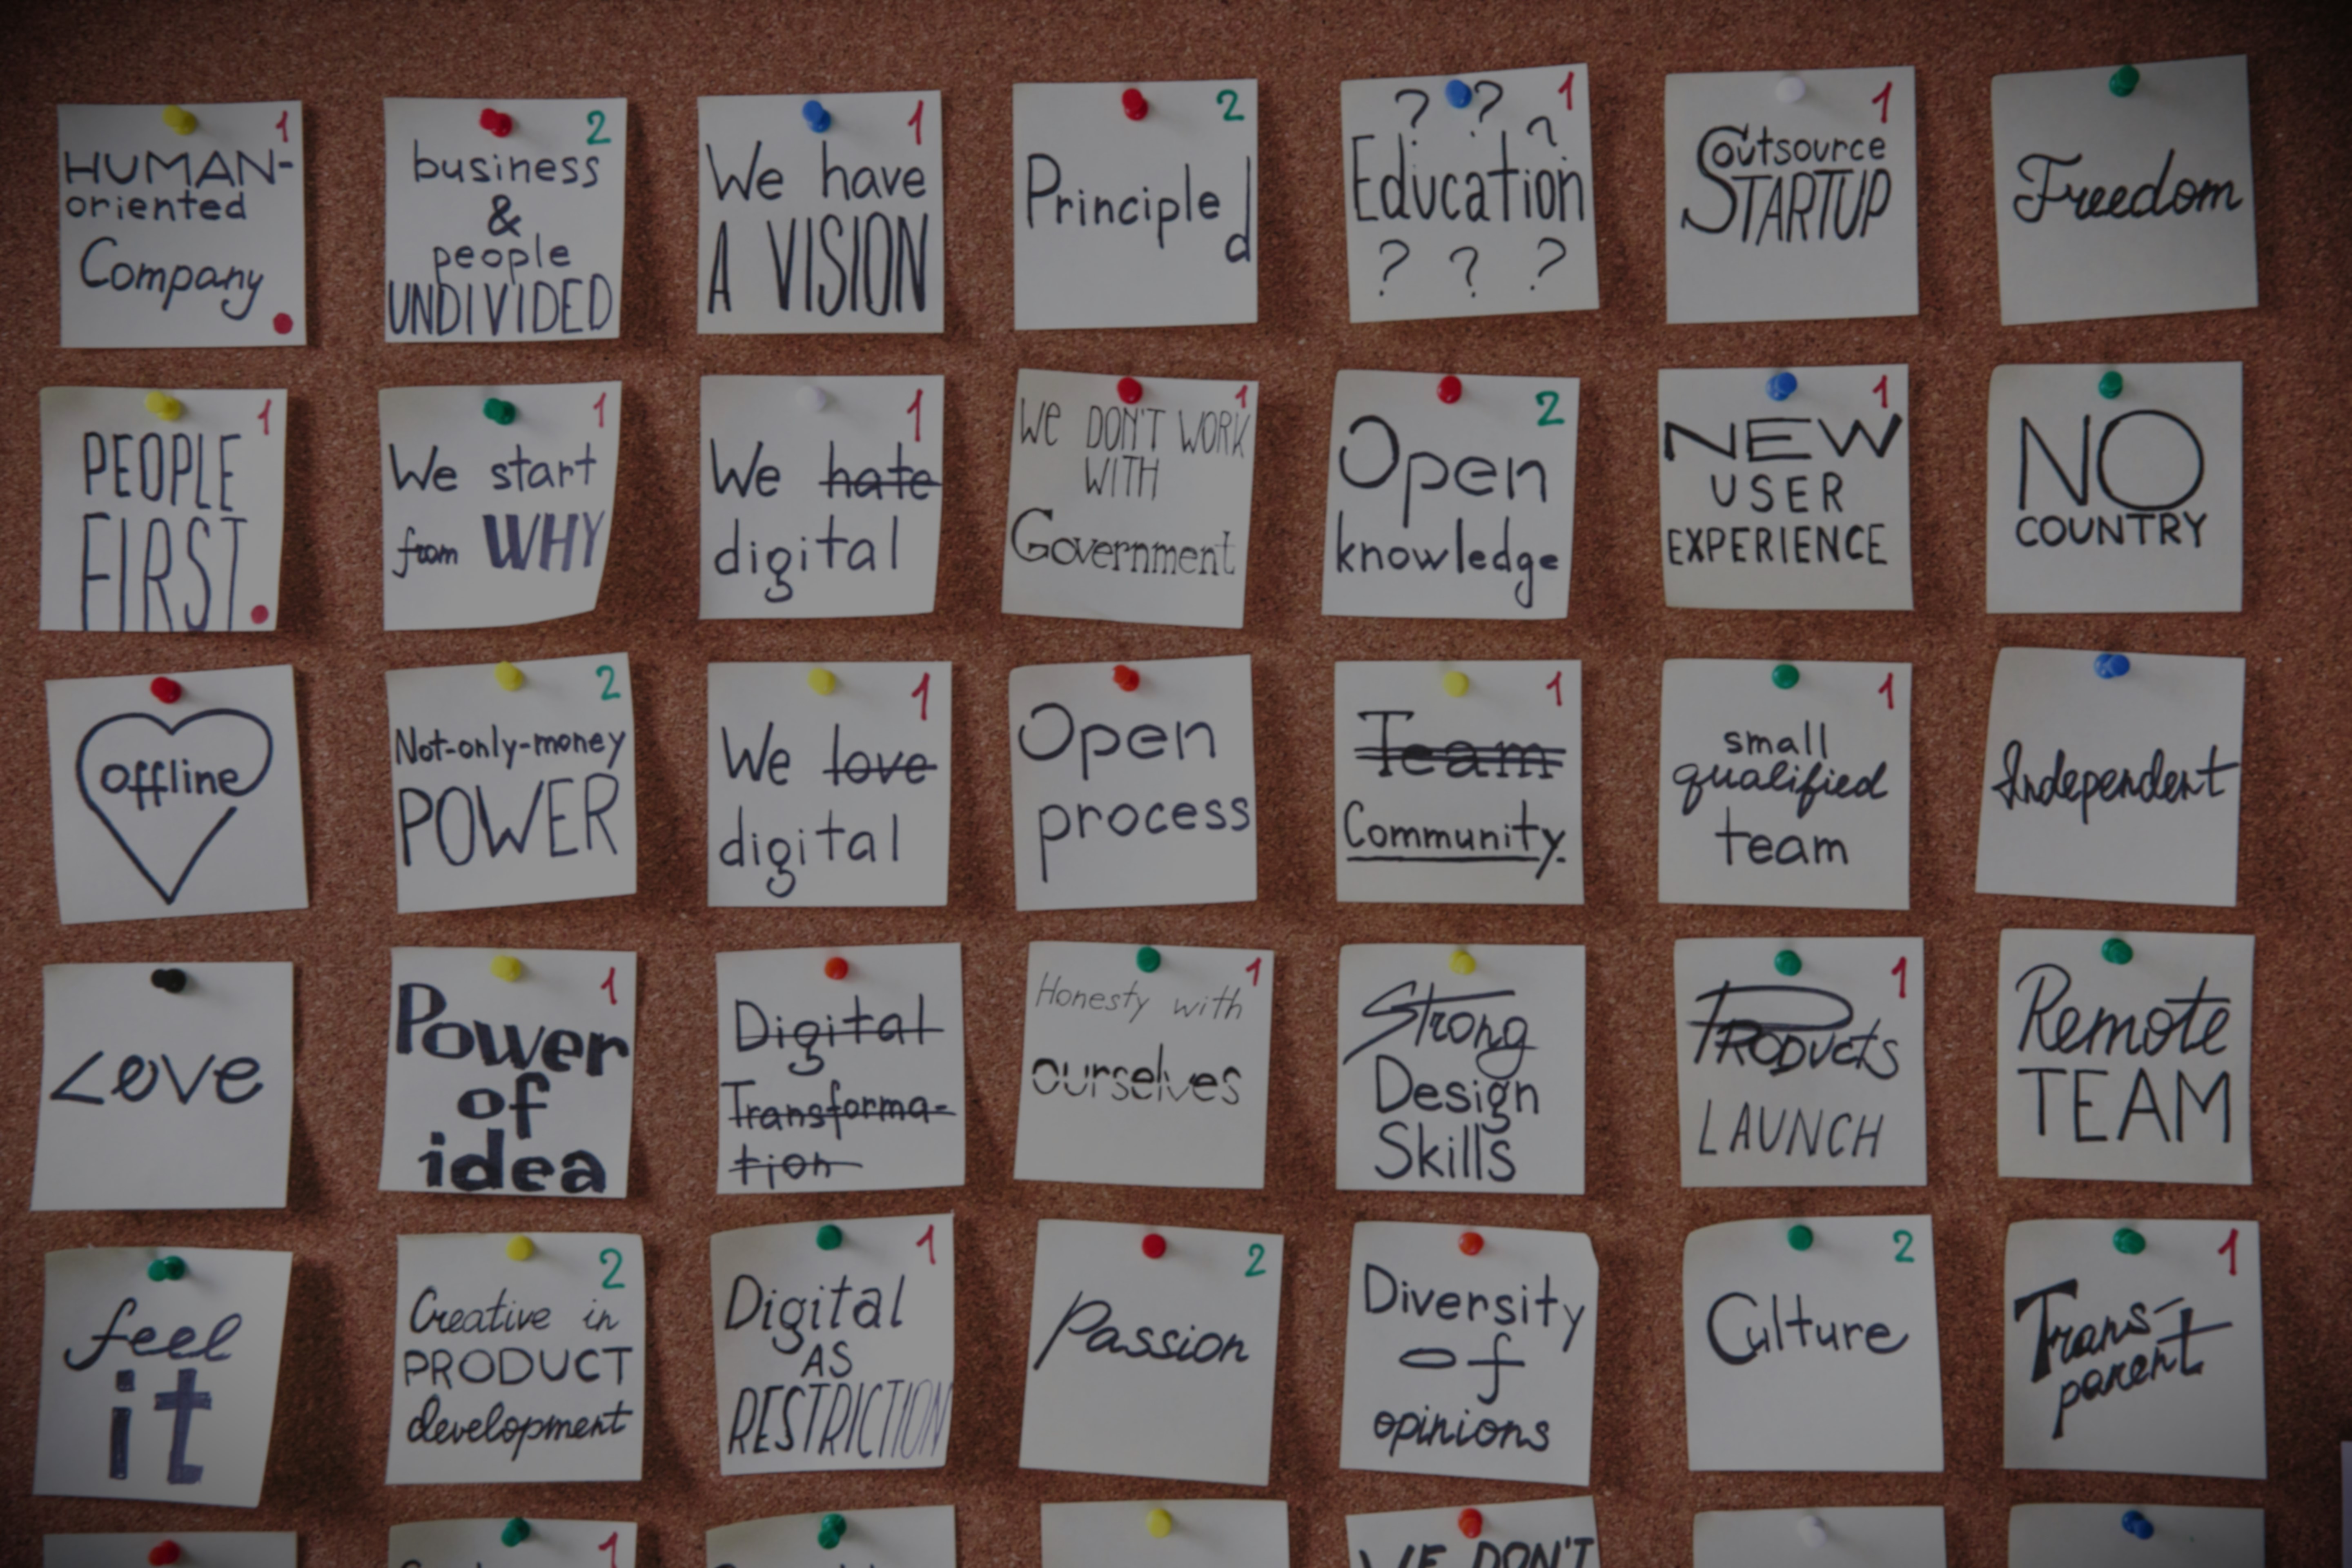 1
HUMAN-
oriented
Company
2
business
&
people
UNDIVIDED
1
We have
A VISION
2
Principled
1
? ? ?
Education
? ? ?
1
Outsource
STARTUP
Freedom
1
PEOPLE
FIRST
1
We start
from WHY
1
We hate
digital
1
WE DON'T WORK
WITH
Government
2
Open
knowledge
1
NEW
USER
EXPERIENCE
NO
COUNTRY
offline
2
Not-only-money
POWER
1
We love
digital
Open
process
1
Team
Community
1
small
qualified
team
Independent
Love
1
Power
of
idea
Digital
Transforma-
tion
1
Honesty with
ourselves
Strong
Design
Skills
1
PRODUCTS
LAUNCH
Remote
TEAM
feel
it
2
Creative in
PRODUCT
development
1
Digital
AS
RESTRICTION
2
Passion
Diversity
of
opinions
2
Culture
1
Trans-
parent
1
WE DON'T